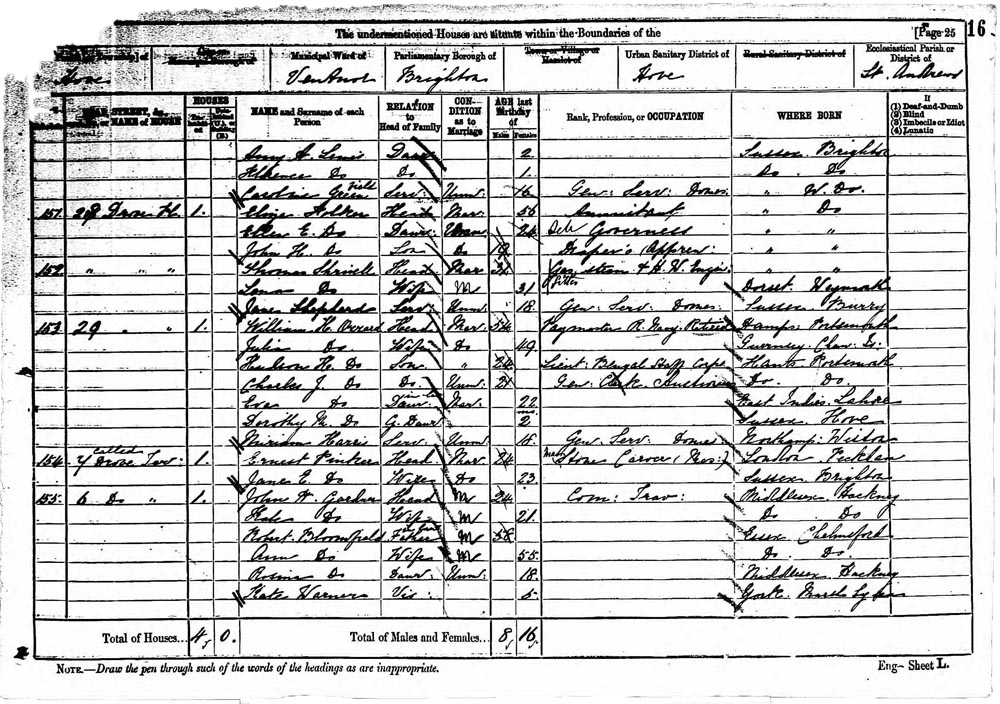 The undermentioned Houses are situate within the Boundaries of the [Page 25 16
Municipal Ward of Parliamentary Borough of Town or Village or Hamlet of Urban Sanitary District of Rural Sanitary District of Ecclesiastical Parish or District of
Hove Ventnor Brighton Hove St. Andrews
STREET, &c. NAME of HOUSE HOUSES NAME and Surname of each Person RELATION to Head of Family CONDITION as to Marriage AGE last Birthday of Males Females Rank, Profession, or OCCUPATION WHERE BORN If (1) Deaf-and-Dumb (2) Blind (3) Imbecile or Idiot (4) Lunatic
Amy Lewis Daur 2 Sussex Brighton
Florence Do Do 1 Do Do
Caroline Greenfield Serv: Unm 16 Gen: Serv: Domes: " W. Do.
151 1. Head Mar 56 Annuitant " Do
Ellen E. Do Daur: 24 Governess " "
John H. Do Son Do 19 Draper's (Appren: " "
152 " " " Thomas Head Mar 32 Gas, Steam & H. W. Engin: " "
Fitter
Lena Do Wife M 31 Dorset Weymouth
Jane Shepherd Serv: Unm: 18 Gen: Serv: Domes: Sussex Burry
153 29 " " 1. William H. Head Mar: 54 Paymaster R. Navy Retired Hamps: Portsmouth
Julia Do Wife Do 49 Guernsey Chan: Is:
H. Do Son " 24 Lieut: Bengal Staff Corps Hants Portsmouth
Charles J. Do Do. Unm: 21 Gen: Clerk Do. Do.
Eva Do Daur in law Mar: 22 East Indies Lahore
Dorothy M. Do G. Daur 2 mos. Sussex Hove
Miriam Harris Serv: Unm 18 Gen: Serv: Domes: Northamp:
154 called 7 Drove 1. Ernest Pinker Head Mar 24 Stone Carver London Peckham
Jane E. Do Wife Do 23 Sussex Brighton
155 6 Do " 1. John W. Gardner Head M 24 Com: Trav: Middlesex Hackney
Kate Do Wife M 21. Do Do
Robert Bloomfield Father in law M 58 Essex Chelmsford
Ann Do Wife M 55. Do. Do.
Rosina Do Daur: Unm: 18. Middlesex Hackney
Kate Warner Vis: 5 York
Total of Houses... 4 0. Total of Males and Females... 8 16
NOTE.—Draw the pen through such of the words of the headings as are inappropriate. Eng— Sheet L.